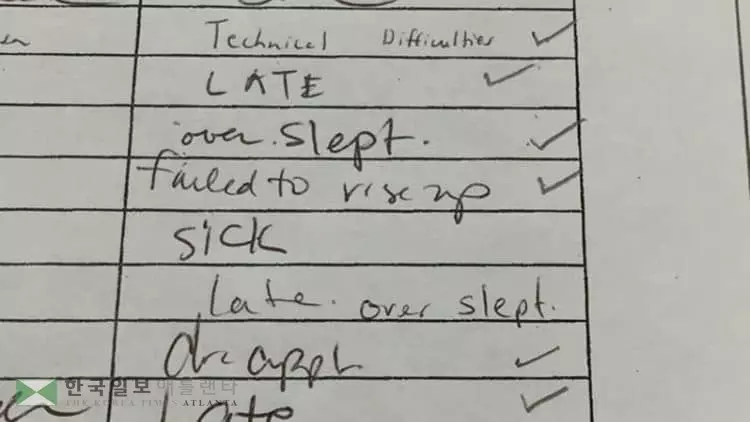 Technical Difficulties ✓
LATE ✓
over.slept. ✓
failed to rise up ✓
SICK
Late. over slept.
dr appt ✓
Late ✓
한국일보 애틀랜타
THE KOREA TIMES ATLANTA